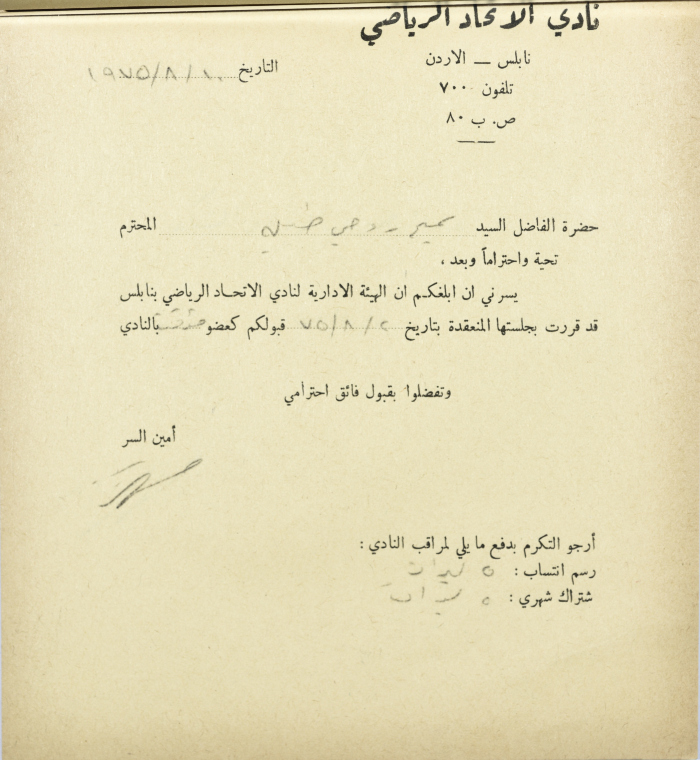 نادي الاتحاد الرياضي
نابلس — الاردن
تلفون ٧٠٠
ص. ب ٨٠
التاريخ ١٩٧٥/٨/١٠
حضرة الفاضل السيد سمير روحي المحترم
تحية واحتراماً وبعد ،
يسرني ان ابلغكم ان الهيئة الادارية لنادي الاتحاد الرياضي بنابلس
قد قررت بجلستها المنعقدة بتاريخ ٧٥/٨/٢ قبولكم كعضو بالنادي
وتفضلوا بقبول فائق احترامي
أمين السر
أرجو التكرم بدفع ما يلي لمراقب النادي :
رسم انتساب : ٥ ليرات
شتراك شهري : ٥ ليرات